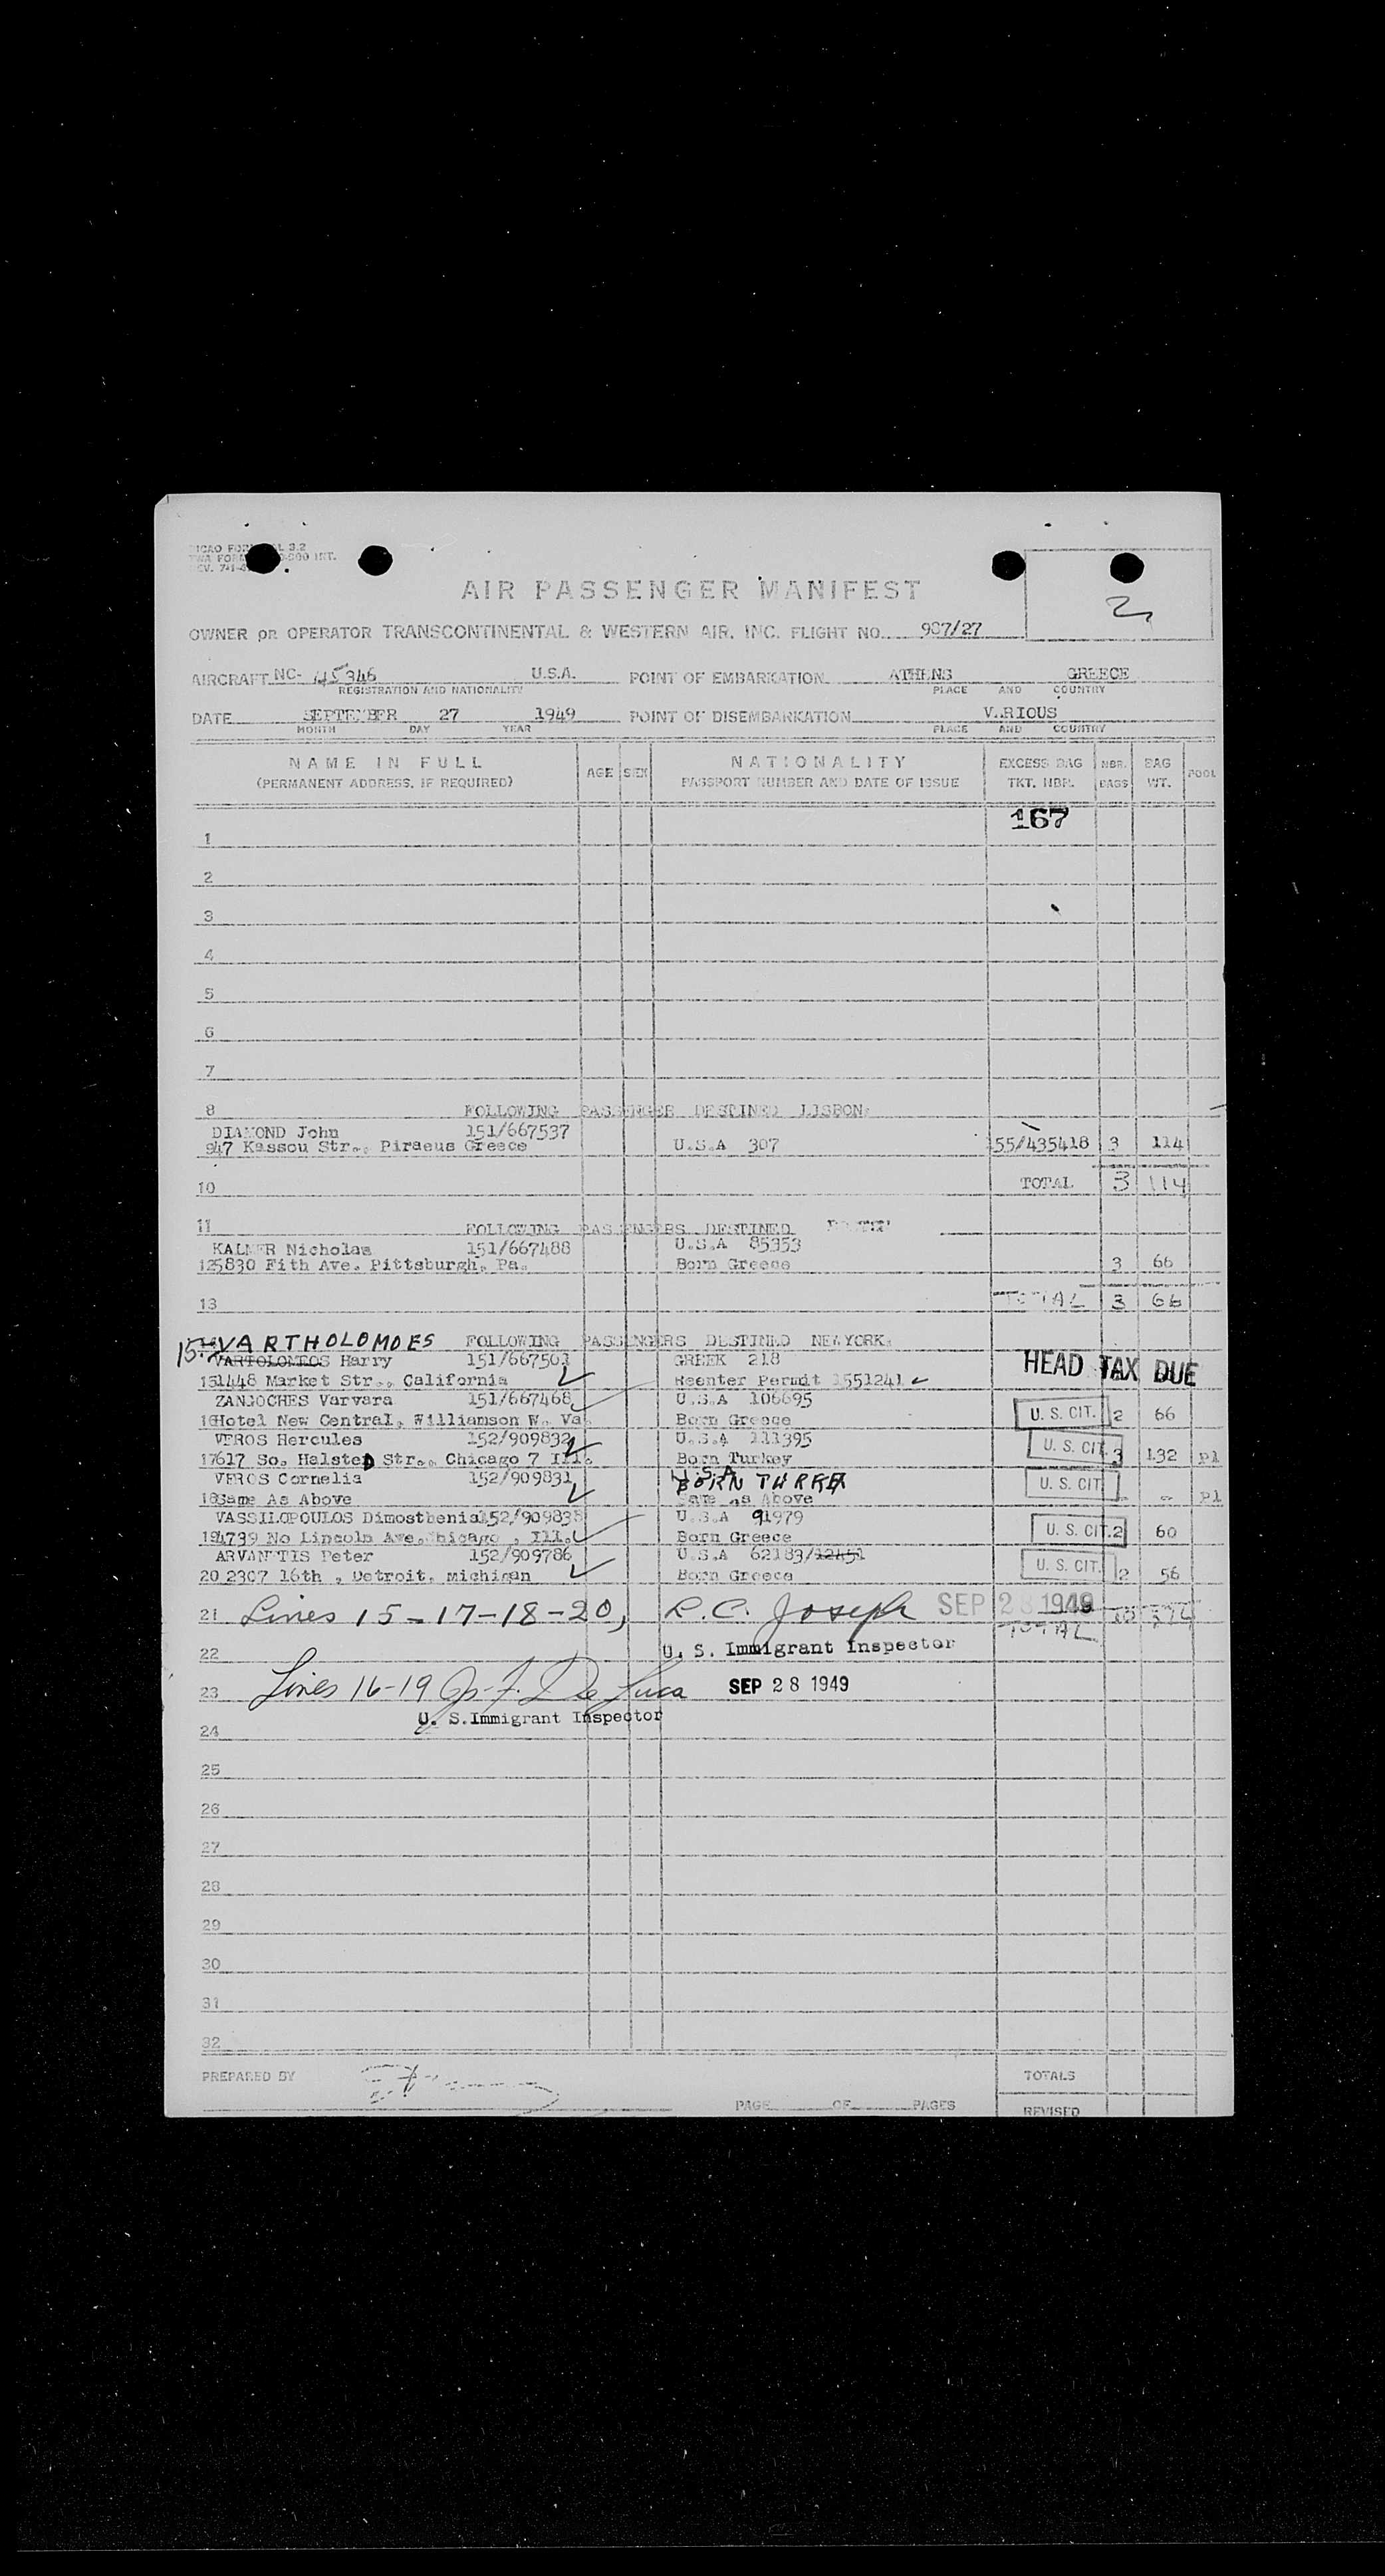 ICAO FOR L 3.2
TWA FORM -900 INT.
REV. 7-1-4
AIR PASSENGER MANIFEST
2
OWNER OR OPERATOR TRANSCONTINENTAL & WESTERN AIR, INC. FLIGHT NO. 907/27
AIRCRAFT NC- 45346 U.S.A. POINT OF EMBARKATION ATHENS GREECE
REGISTRATION AND NATIONALITY PLACE AND COUNTRY
DATE SEPTEMBER 27 1949 POINT OF DISEMBARKATION V..RIOUS
MONTH DAY YEAR PLACE AND COUNTRY
NAME IN FULL (PERMANENT ADDRESS, IF REQUIRED) AGE SEX NATIONALITY PASSPORT NUMBER AND DATE OF ISSUE EXCESS BAG TKT. NBR. NBR. BAGS BAG WT. POOL
167
1
2
3
4
5
6
7
8 FOLLOWING PASSENGER DESTINED LISBON:
DIAMOND John 151/667537
947 Kassou Str., Piraeus Greece U.S.A 307 155/435418 3 114
10 TOTAL 3 114
11 FOLLOWING PASSENGERS DESTINED
KALMER Nicholas 151/667488 U.S.A 85353
125830 Fith Ave. Pittsburgh, Pa. Born Greece 3 66
13 TOTAL 3 66
15 VARTHOLOMOES FOLLOWING PASSENGERS DESTINED NEWYORK:
VARTOLOMEOS Harry 151/667501 GREEK 218 HEAD TAX DUE
151448 Market Str., California Reenter Permit 1551241
ZANGOCHES Varvara 151/667468 U.S.A 106695
16Hotel New Central, Williamson W. Va. Born Greece U. S. CIT. 2 66
VEROS Hercules 152/909832 U.S.A 111395
17617 So. HalsteD Str., Chicago 7 Ill. Born Turkey U. S. CIT. 3 132 pl
VEROS Cornelia 152/909831 U.S.A BORN TURKEY
18Same As Above Same as Above U. S. CIT. - - pl
VASSILOPOULOS Dimosthenis152/909835 U.S.A 91979
194739 No Lincoln Ave, Chicago, Ill. Born Greece U. S. CIT. 2 60
ARVANTTIS Peter 152/909786 U.S.A 62183/12451
20 2307 16th , Detroit, Michigan Born Greece U. S. CIT. 2 56
21 Lines 15-17-18-20, R.C. Joseph SEP 28 1949
TOTAL
22 U. S. Immigrant Inspector
23 Lines 16-19 Js. F. De Luca SEP 28 1949
U. S.Immigrant Inspector
24
25
26
27
28
29
30
31
32
PREPARED BY TOTALS
PAGE OF PAGES REVISED